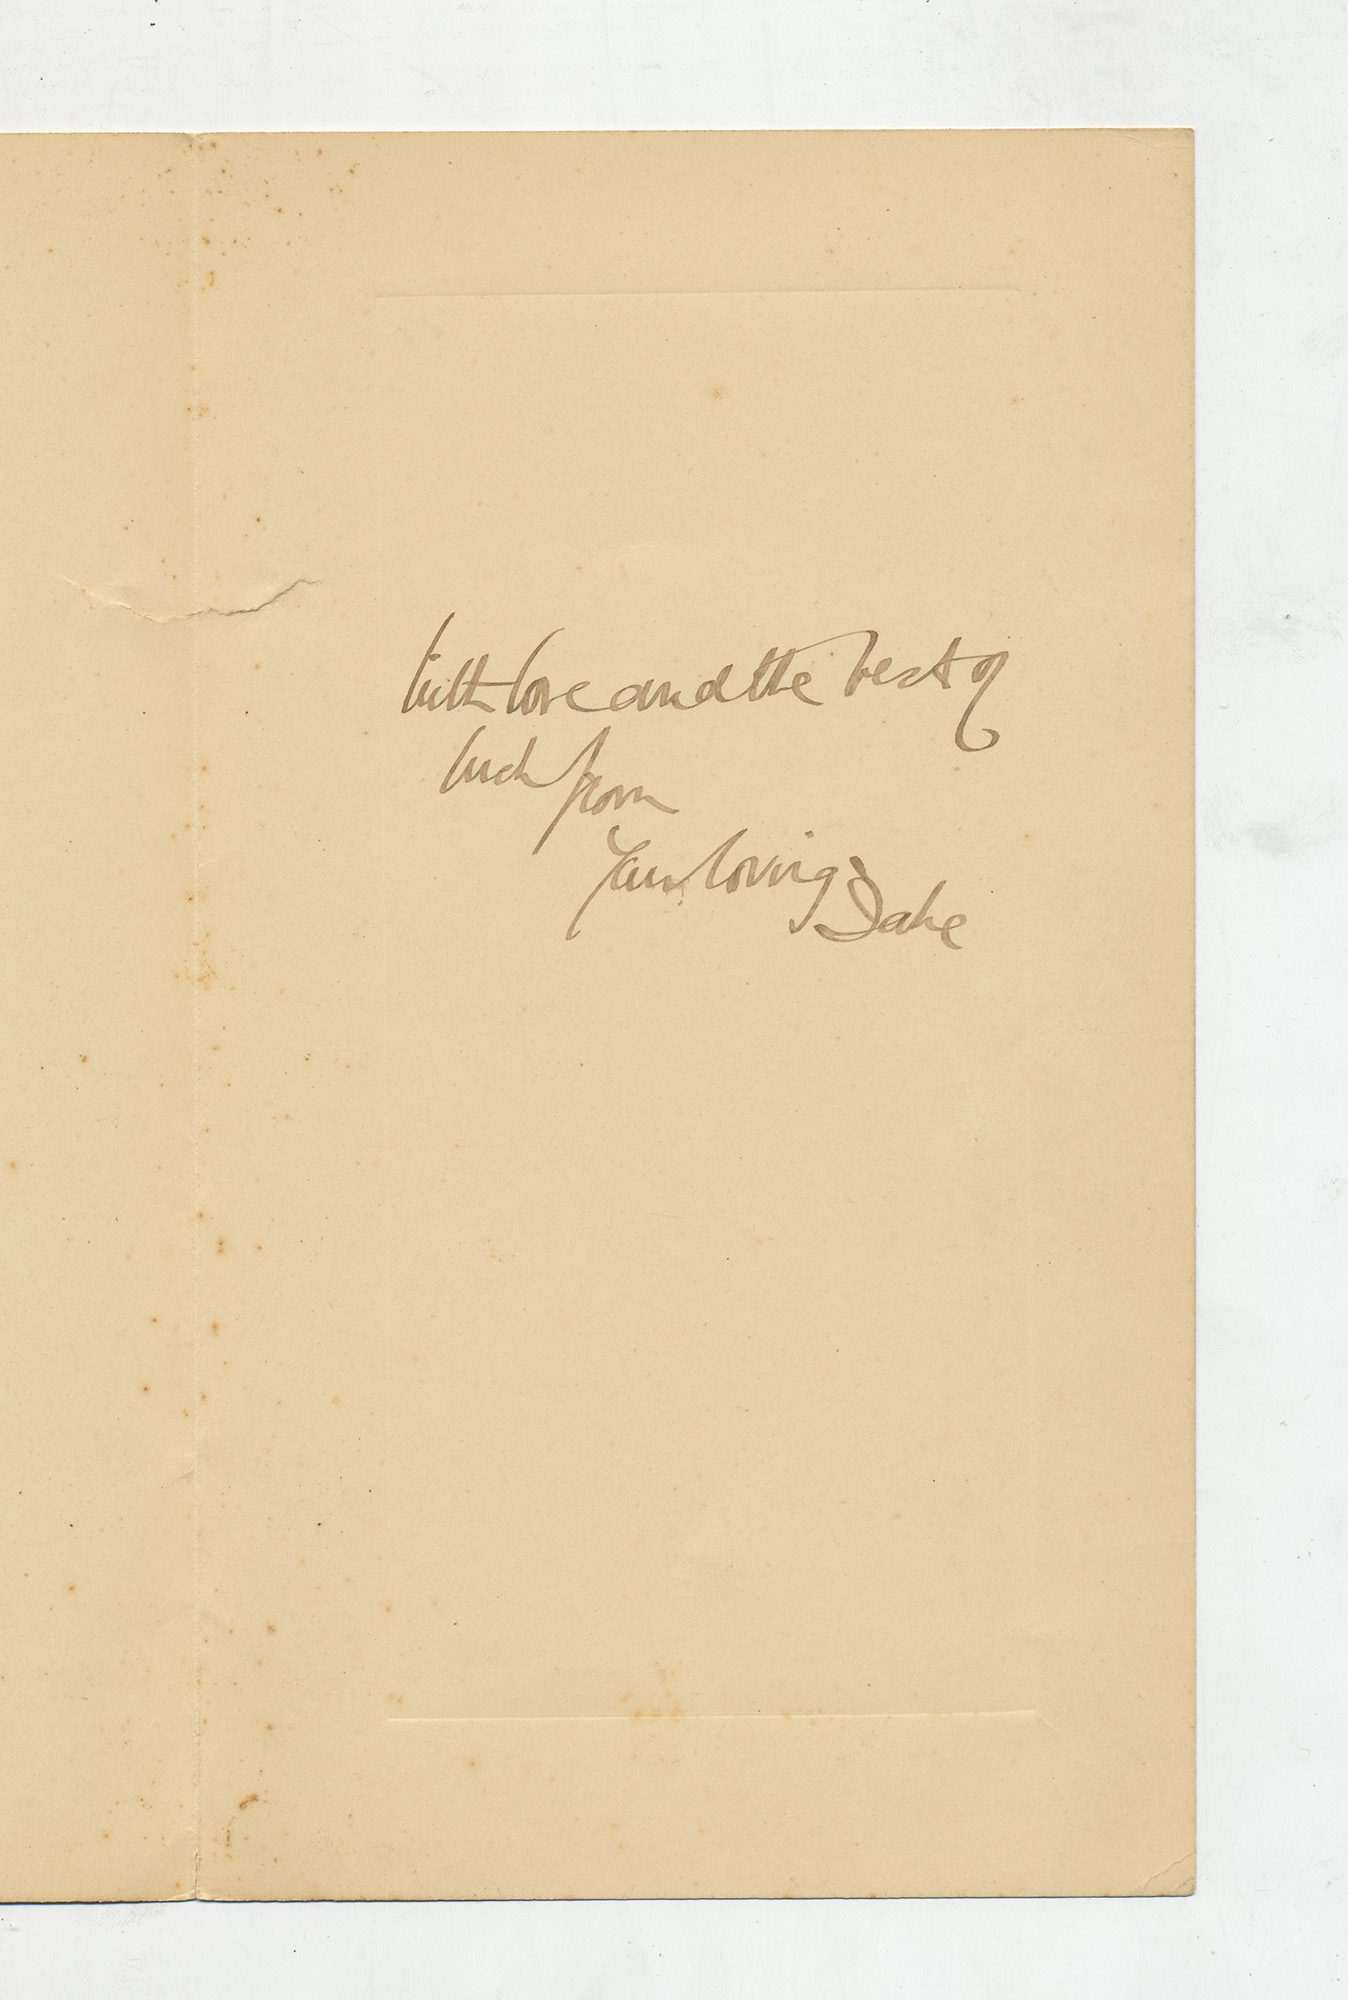 With love and the best of
luck from
Your loving
Jake